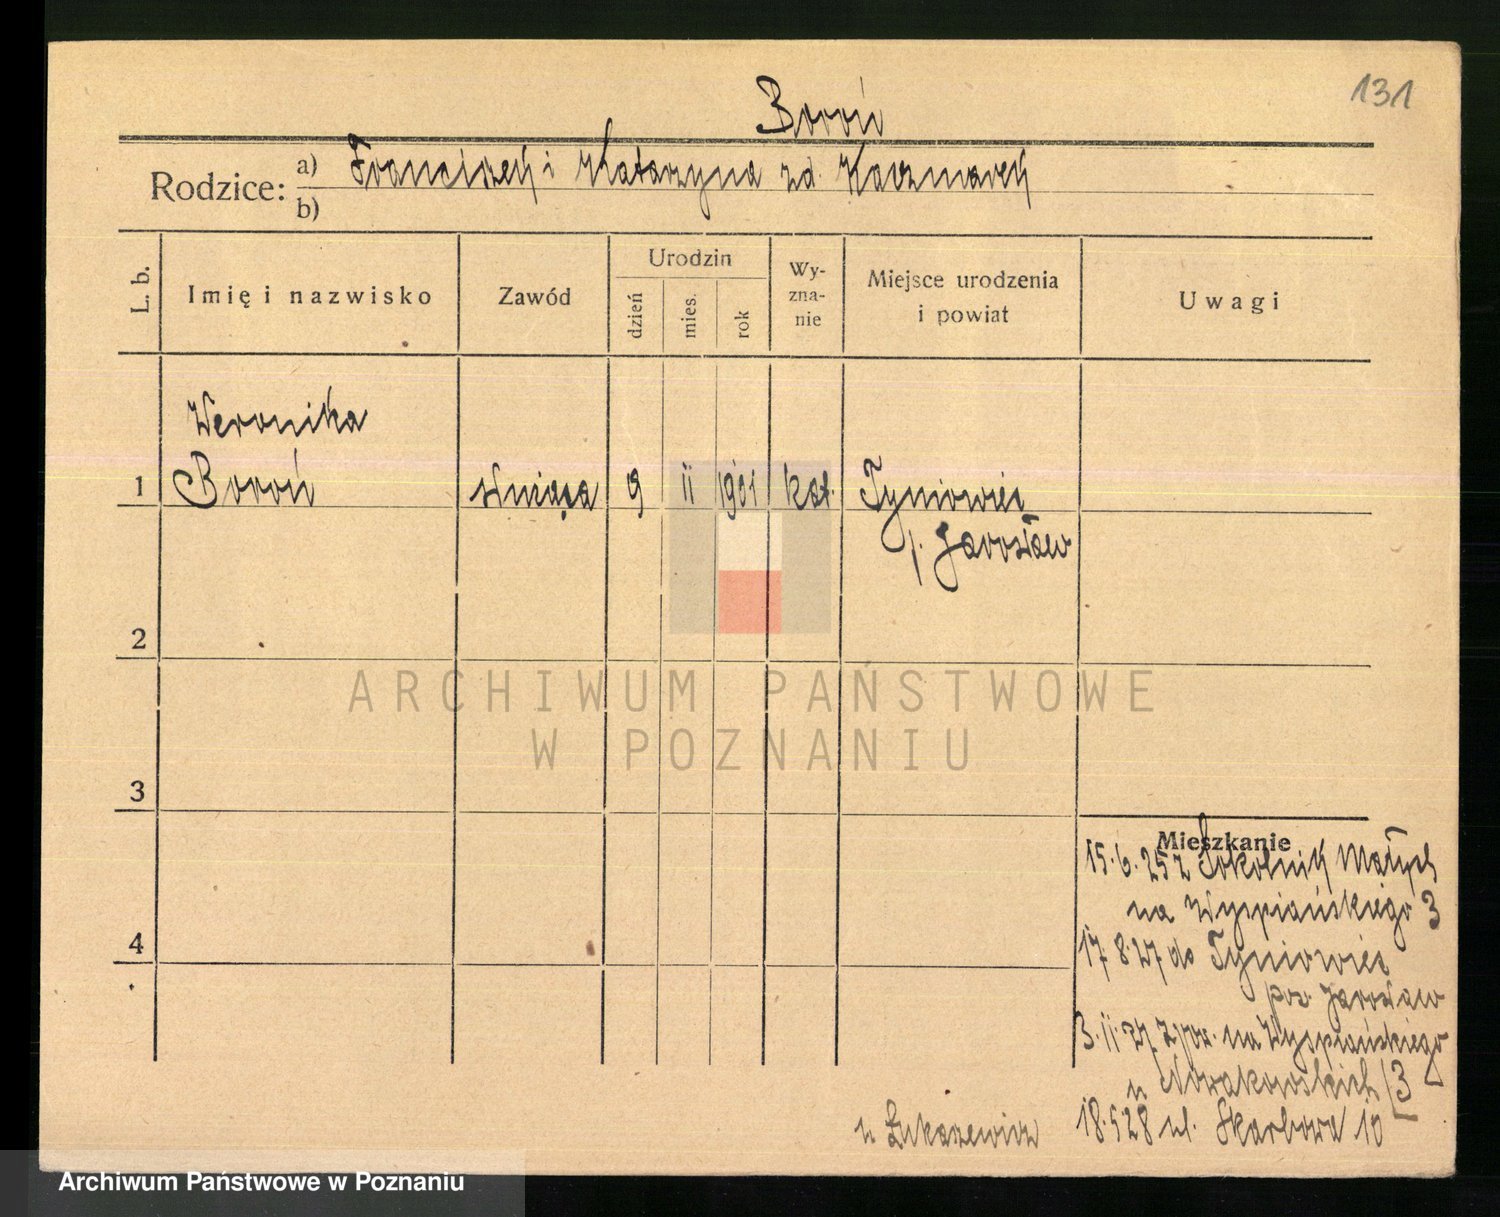 131
Boroń
Rodzice: a) Franciszek i Katarzyna zd. Kaczmarek
b)
L. b.
Imię i nazwisko
Zawód
Urodzin
dzień
mies.
rok
Wy-
zna-
nie
Miejsce urodzenia
i powiat
Uwagi
Weronika
1 Boroń służąca 9 II 1901 kat. Tyniowiec
p. Jarosław
2
ARCHIWUM PAŃSTWOWE
W POZNANIU
3
Mieszkanie
15.6.25 z Sokolnik Małych
na Wyspiańskiego 3
4
17.8.27 do Tyniowiec
pow. Jarosław
3.11.27 z pow. na Wyspiańskiego
u Nowakowskich 3
18.5.28 ul. Skarbowa 10
u Łukaszewicz
Archiwum Państwowe w Poznaniu